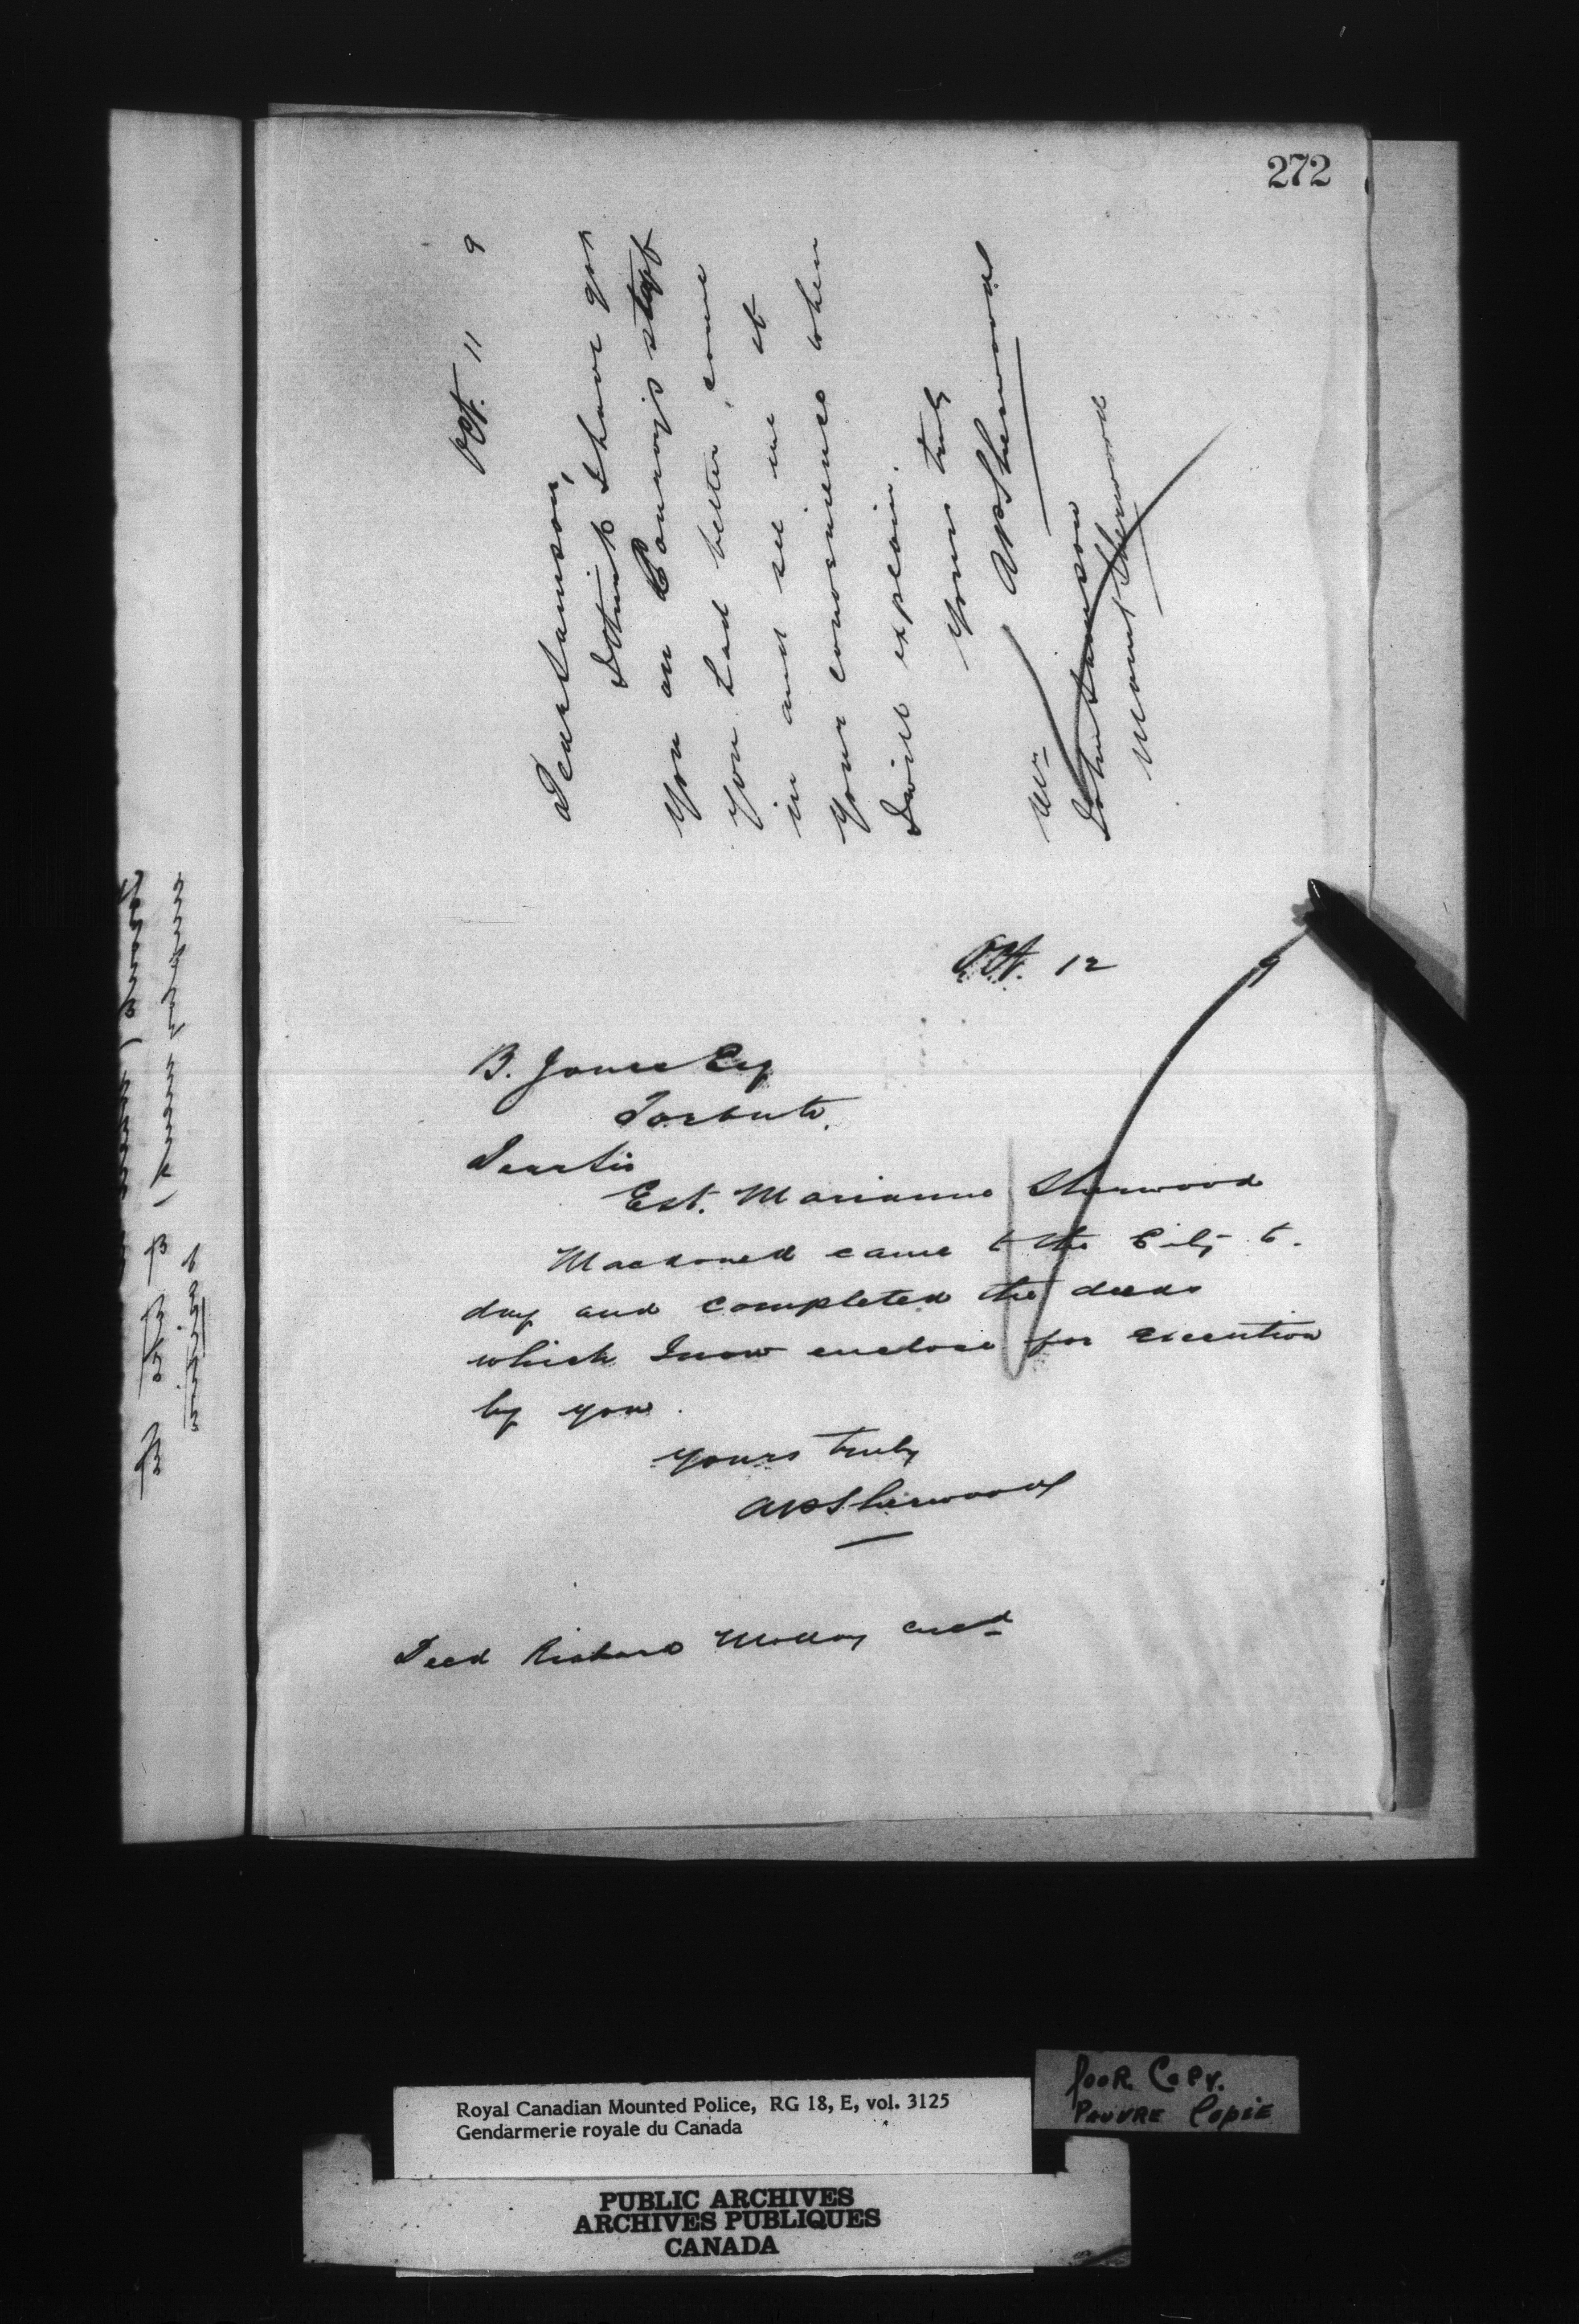 272
Oct. 11 9
Dear Samson,
I think I have got
you on Conroy's staff
you had better come
in and see me at
your convenience when
I will explain.
Yours truly
APSherwood
Mr
John Samson
Mount Sherwood
Oct. 12 9
B. Jones Esq
Toronto.
Dear Sir
Est. Marianne Sherwood
came to the City to-
day and completed the deeds
which I now enclose for execution
by you.
Yours truly
APSherwood
Deed Richard Molloy encd
Royal Canadian Mounted Police, RG 18, E, vol. 3125
Gendarmerie royale du Canada
Poor Copy.
Pauvre Copie
PUBLIC ARCHIVES
ARCHIVES PUBLIQUES
CANADA